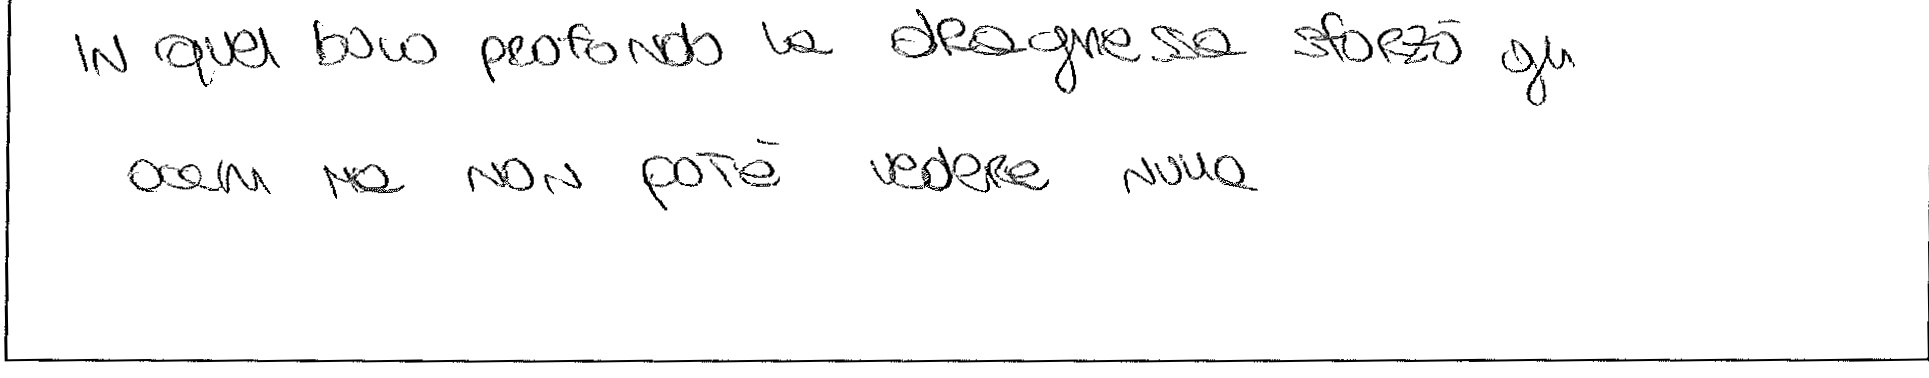 IN quel buco profondo la dragnessa sforzò gli
occhi ma non potè vedere nulla